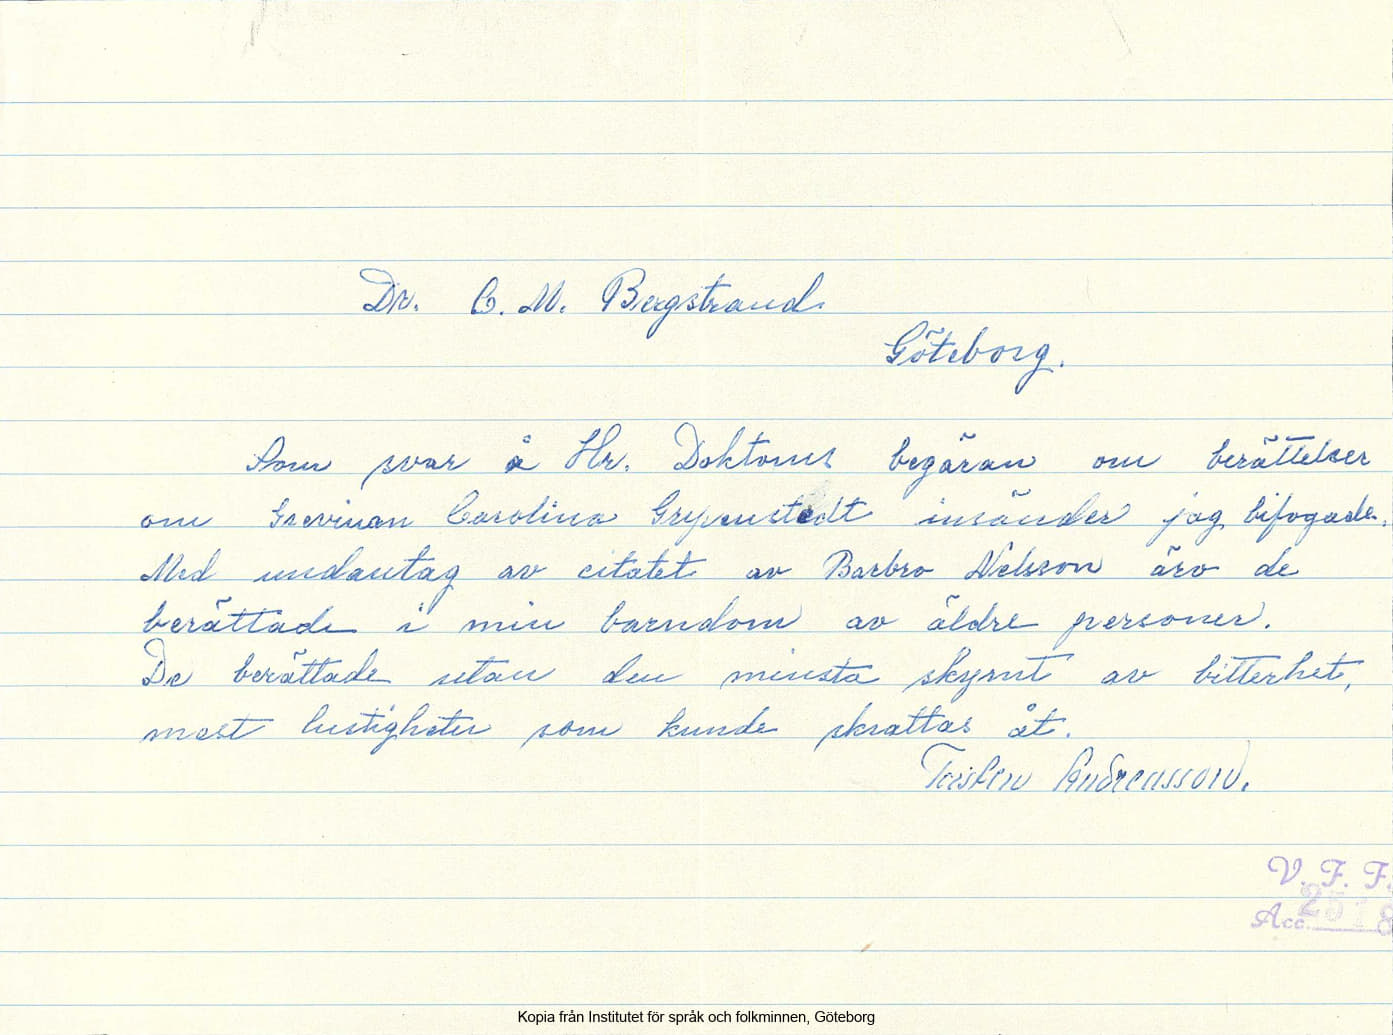 Dr. C. M. Bergstrand.
Göteborg.
Som svar å Hr. Doktorns begäran om berättelser
om Grevinan Carolina Gripenstedt insänder jag bifogade.
Med undantag av citatet av Barbro Nelsson äro de
berättade i min barndom av äldre personer.
De berättade utan den minsta skymt av bitterhet,
mest lustigheter som kunde skrattas åt.
Torsten Andreasson.
V. F. F.
Acc. 2518
Kopia från Institutet för språk och folkminnen, Göteborg